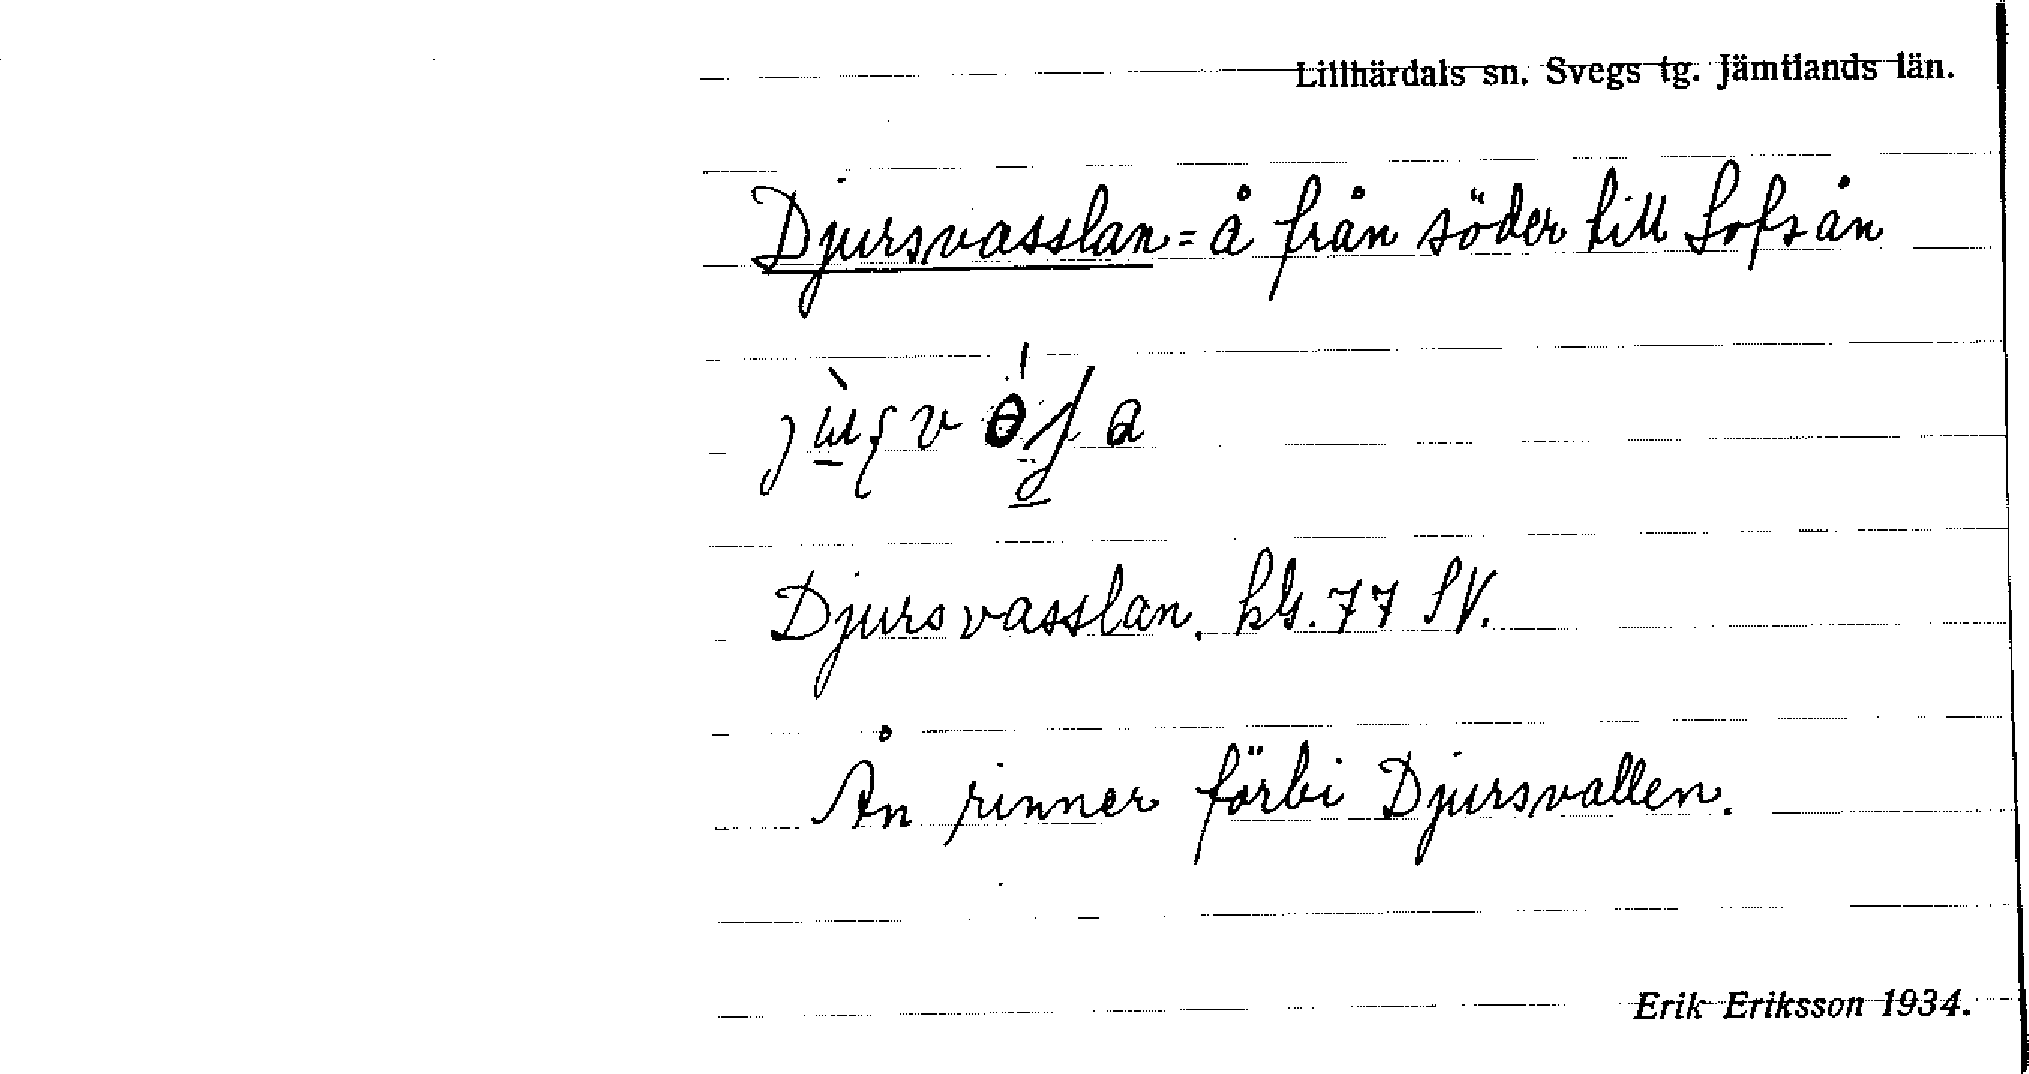 Lillhärdals sn. Svegs tg. Jämtlands län.
Djursvasslan = å från söder till Lofsån
Djursvasslan. kbl. 77 SV.
Ån rinner förbi Djursvallen.
Erik Eriksson 1934.